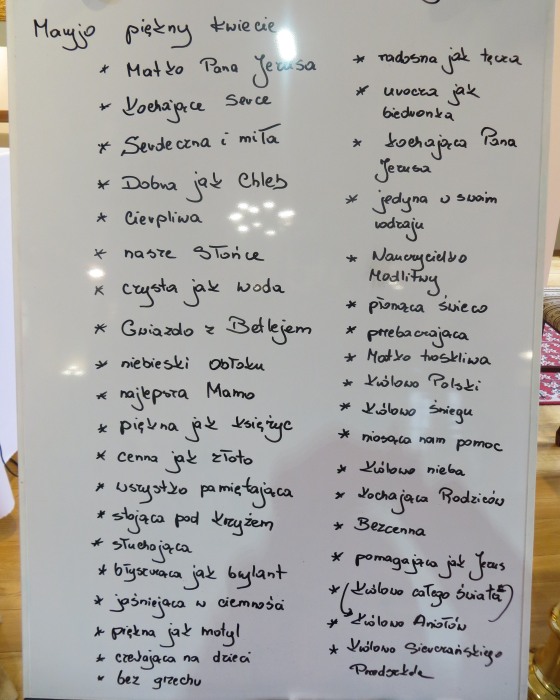 Maryjo piękny kwiecie
* Matko Pana Jezusa
* Kochające serce
* Serdeczna i miła
* Dobra jak Chleb
* Cierpliwa
* nasze Słońce
* czysta jak woda
* Gwiazdo z Betlejem
* niebieski obłoku
* najlepsza Mamo
* piękna jak księżyc
* cenna jak złoto
* wszystko pamiętająca
* stojąca pod krzyżem
* słuchająca
* błyszcząca jak brylant
* jaśniejąca w ciemności
* piękna jak motyl
* czekająca na dzieci
* bez grzechu
* radosna jak tęcza
* urocza jak
biedronka
* kochająca Pana
Jezusa
* jedyna w swoim
rodzaju
* Nauczycielko
Modlitwy
* płonąca świeco
* przebaczająca
* Matko troskliwa
* Królowo Polski
* Królowo śniegu
* niosąca nam pomoc
* Królowo nieba
* Kochająca Rodziców
* Bezcenna
* pomagająca jak Jezus
* Królowo całego świata
* Królowo Aniołów
* Królowo Sieverzańskiego
Przedszkola